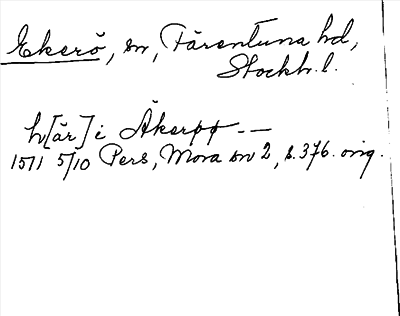 Ekerö, sn, Färentuna hd,
Stockh. l.
h[är] i Åkerpp - -
1511 5/10 Pers, Mora sn 2, s. 376. orig.